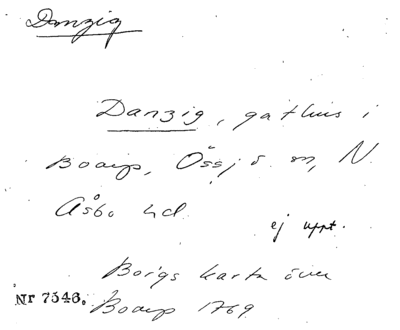 Danzig
Danzig, gathus i
Boarp, Össjö sn, N.
Åsbo hd.
ej uppt.
Borgs karta över
Nr 7546. Boarp 1769